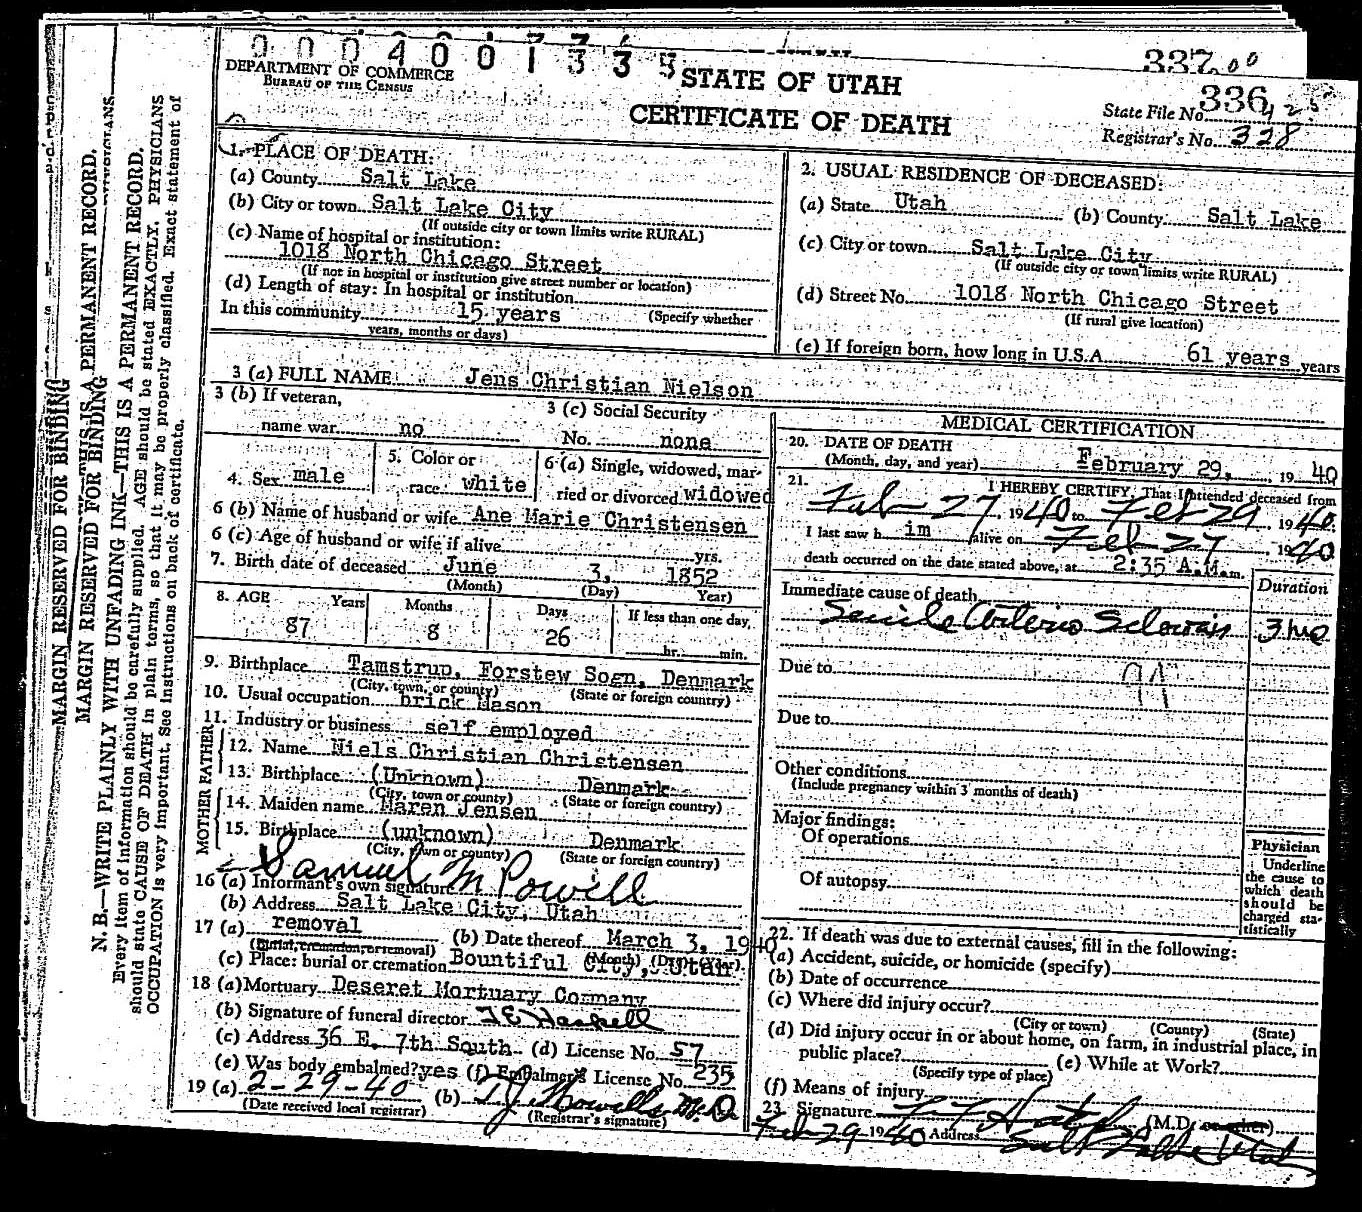 0 0 0 4 0 0 1 3 3 5
337.00
DEPARTMENT OF COMMERCE
BUREAU OF THE CENSUS
STATE OF UTAH
CERTIFICATE OF DEATH
State File No. 336
Registrar's No. 328
1. PLACE OF DEATH:
(a) County Salt Lake
(b) City or town Salt Lake City
(If outside city or town limits write RURAL)
(c) Name of hospital or institution:
1018 North Chicago Street
(If not in hospital or institution give street number or location)
(d) Length of stay: In hospital or institution
In this community 15 years (Specify whether
years, months or days)
2. USUAL RESIDENCE OF DECEASED:
(a) State Utah (b) County Salt Lake
(c) City or town Salt Lake City
(If outside city or town limits write RURAL)
(d) Street No. 1018 North Chicago Street
(If rural give location)
(e) If foreign born, how long in U.S.A. 61 years years
3 (a) FULL NAME Jens Christian Nielson
3 (b) If veteran,
name war no
3 (c) Social Security
No. none
4. Sex male
5. Color or
race white
6 (a) Single, widowed, mar-
ried or divorced widowed
6 (b) Name of husband or wife Ane Marie Christensen
6 (c) Age of husband or wife if alive yrs.
7. Birth date of deceased June 3, 1852
(Month) (Day) Year)
8. AGE Years Months Days If less than one day
87 8 26 hr. min.
9. Birthplace Tamstrup, Forstew Sogn, Denmark
(City, town, or county) (State or foreign country)
10. Usual occupation brick Mason
11. Industry or business self employed
FATHER
12. Name Niels Christian Christensen
13. Birthplace (Unknown) Denmark
(City, town or county) (State or foreign country)
MOTHER
14. Maiden name Maren Jensen
15. Birthplace (unknown) Denmark
(City, town or county) (State or foreign country)
16 (a) Informant's own signature Samuel M Powell
(b) Address Salt Lake City, Utah
17 (a) removal (b) Date thereof March 3, 1940
(Burial, cremation or removal) (Month) (Day) (Year)
(c) Place: burial or cremation Bountiful City, Utah
18 (a) Mortuary Deseret Mortuary Company
(b) Signature of funeral director
(c) Address 36 E. 7th South (d) License No. 57
(e) Was body embalmed? yes (f) Embalmer's License No. 235
19 (a) 2-29-40 (b) M.D.
(Date received local registrar) (Registrar's signature)
MEDICAL CERTIFICATION
20. DATE OF DEATH
(Month, day, and year) February 29, 19 40
21. I HEREBY CERTIFY, That I attended deceased from
Feb 27 1940 to Feb 29 1940.
I last saw h im alive on Feb 27, 1940
death occurred on the date stated above, at 2:35 A.M. m.
Immediate cause of death Duration
Senile Arterio 3 mo
Due to
Due to
Other conditions
(Include pregnancy within 3 months of death)
Major findings:
Of operations
Of autopsy
Physician
Underline
the cause to
which death
should be
charged sta-
tistically
22. If death was due to external causes, fill in the following:
(a) Accident, suicide, or homicide (specify)
(b) Date of occurrence
(c) Where did injury occur?
(City or town) (County) (State)
(d) Did injury occur in or about home, on farm, in industrial place, in
public place? (e) While at Work?
(Specify type of place)
(f) Means of injury
23. Signature (M.D. or other)
Feb 29 1940 Address Salt Lake Utah
MARGIN RESERVED FOR BINDING
MARGIN RESERVED FOR BINDING
N. B.—WRITE PLAINLY WITH UNFADING INK—THIS IS A PERMANENT RECORD.
Every item of information should be carefully supplied. AGE should be stated EXACTLY. PHYSICIANS
should state CAUSE OF DEATH in plain terms, so that it may be properly classified. Exact statement of
OCCUPATION is very important. See instructions on back of certificate.